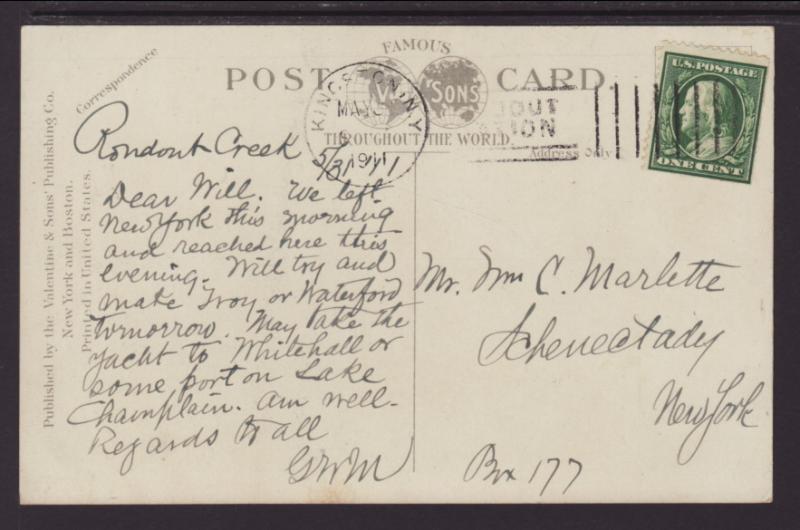 FAMOUS
POST CARD.
V & SONS
THROUGHOUT THE WORLD.
Address Only
Correspondence
Published by the Valentine & Sons' Publishing Co.
New York and Boston.
Printed in United States.
KINGSTON, N.Y.
MAY
1911
U.S. POSTAGE
ONE CENT
Rondout Creek
5/31/11
Dear Will. We left
New York this morning
and reached here this
evening. Will try and
make Troy or Waterford
tomorrow. May take the
yacht to Whitehall or
some port on Lake
Champlain. am well-
Regards to all
GWM
Mr. Wm C. Marlette
Schenectady
New York
Box 177